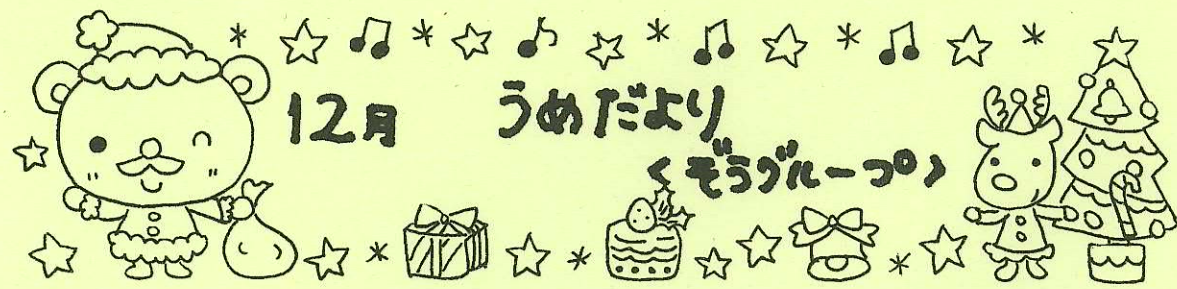 12月 うめだより
<ぞうグループ>